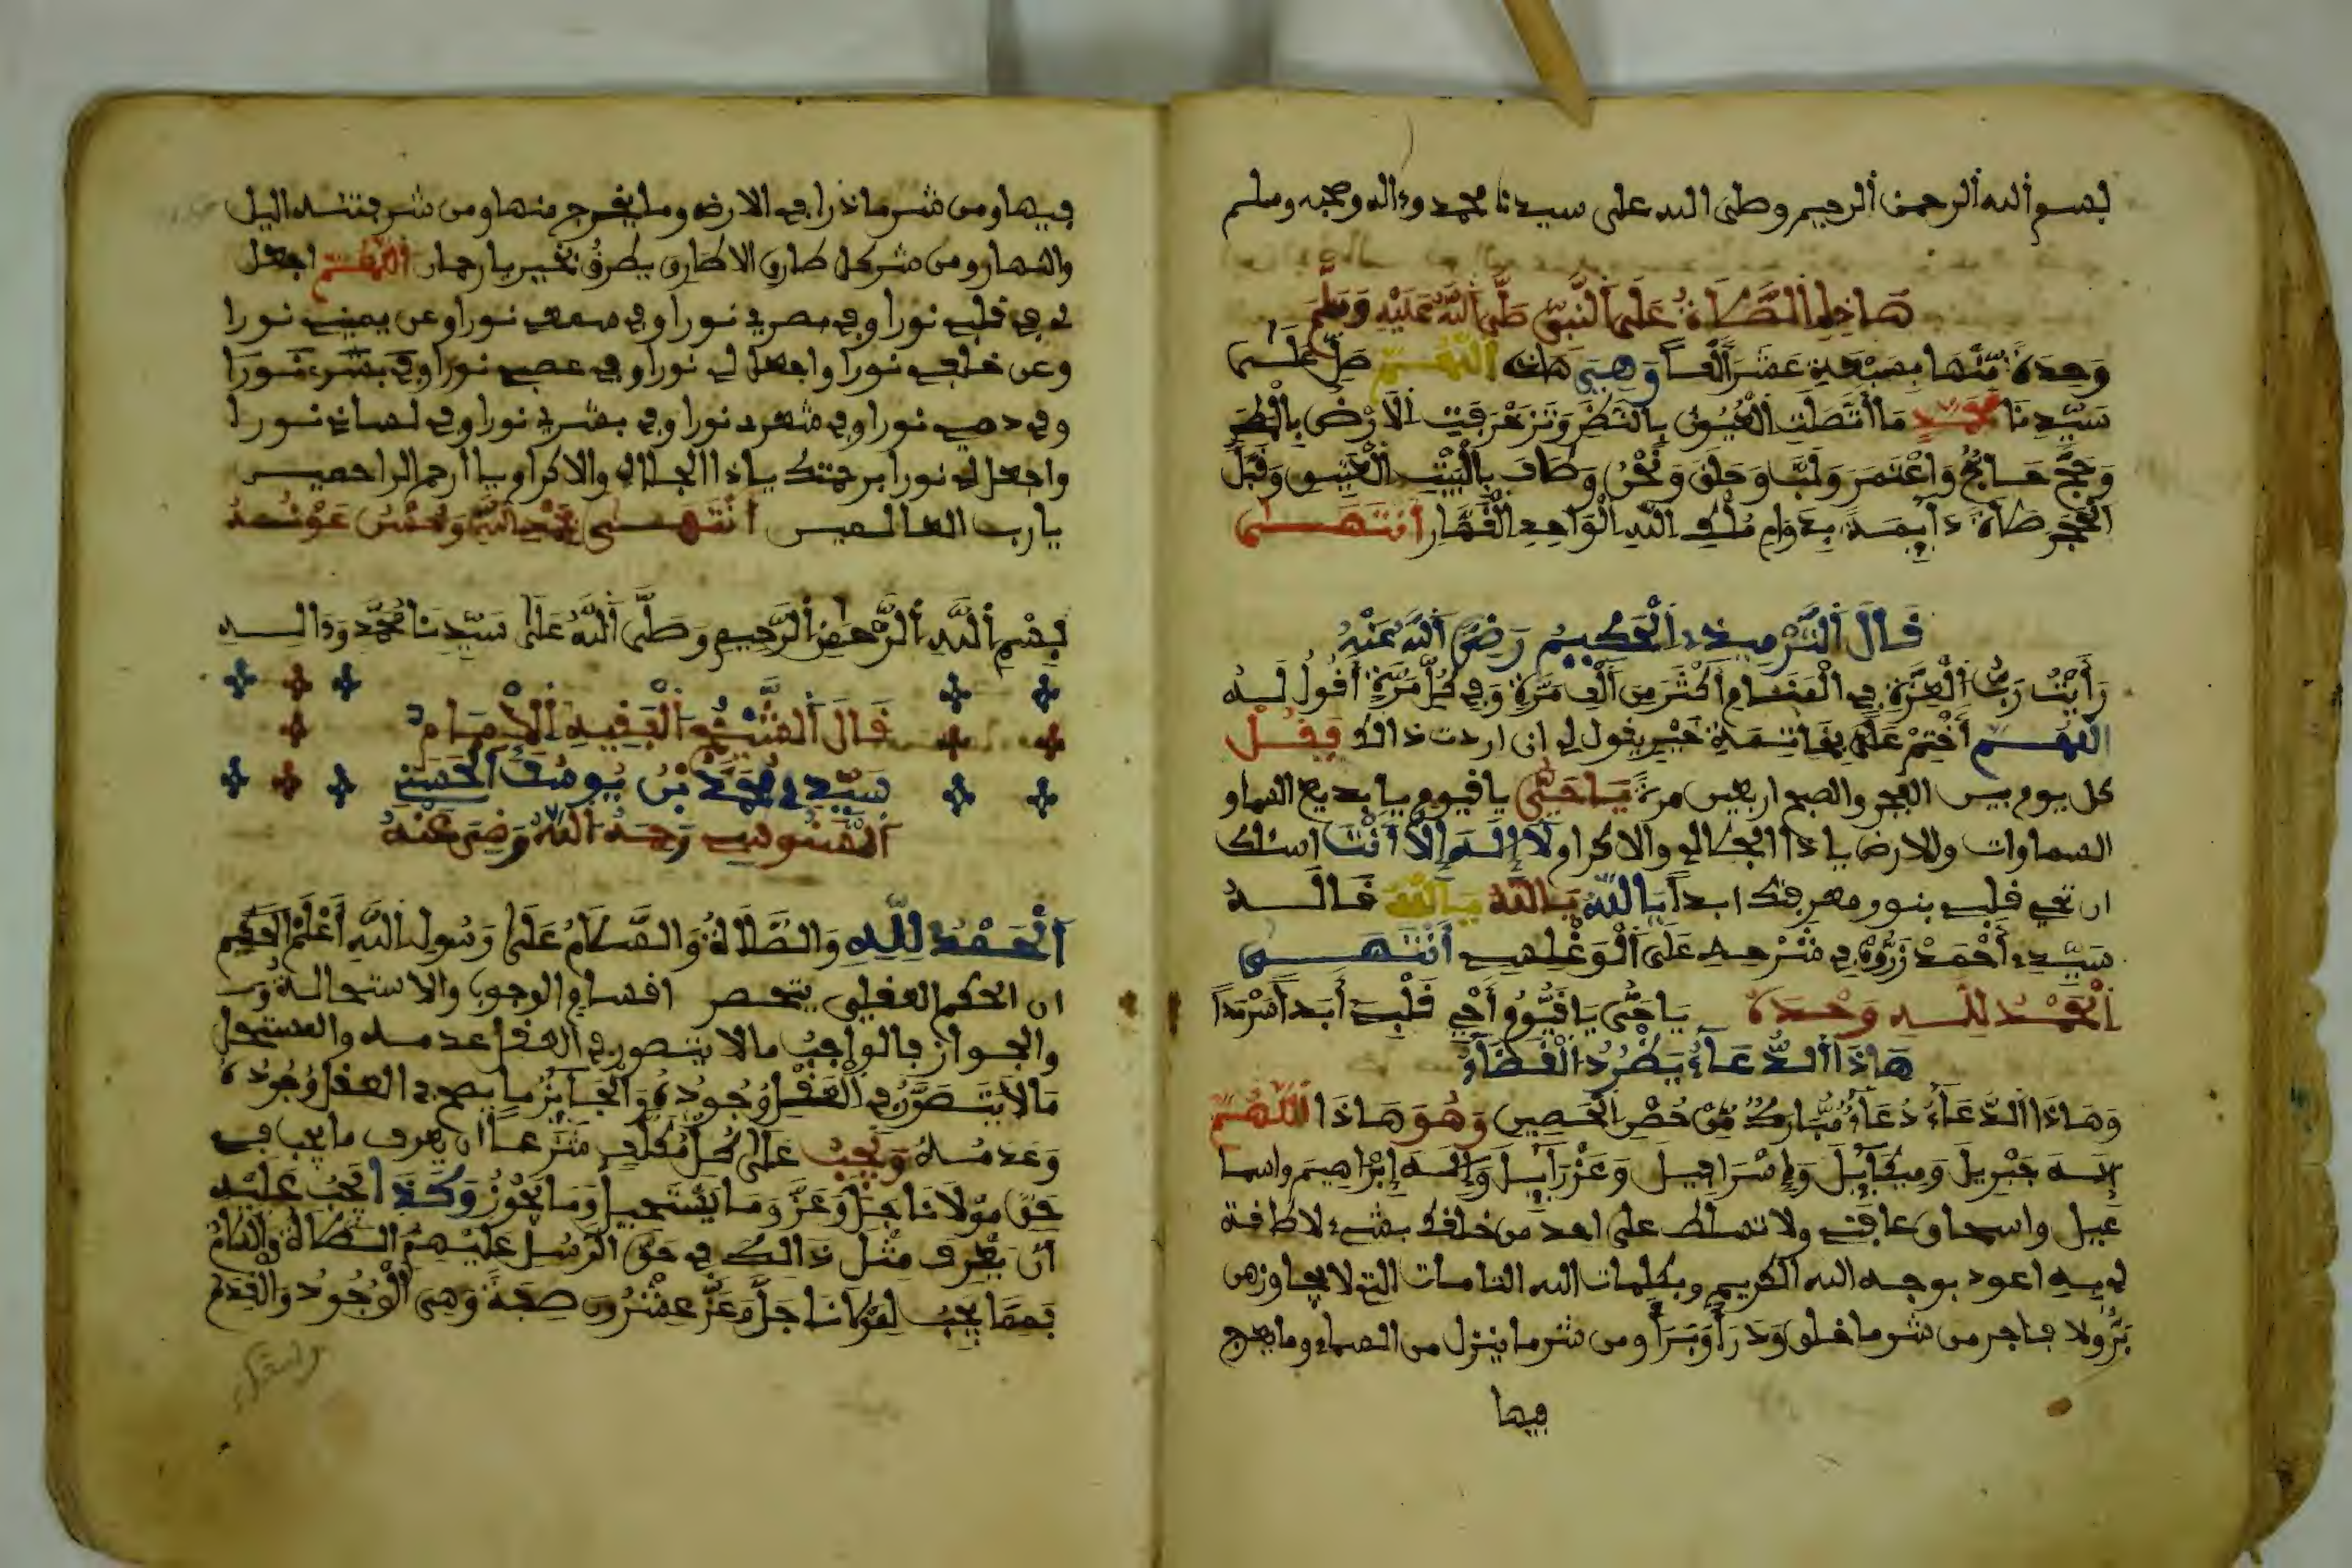 بسم الله الرحمن الرحيم وصلى الله على سيدنا محمد وءاله وصحبه وسلم
هاذه الصلاة على النبي صلى الله عليه وسلم
وحدة منها بسبعة عشر ألفا وهي هاذه اللهم صل على
سيدنا محمد ما اتصلت العيون بالنظر وتزخرفت الارض بالمطر
وحج حاج واعتمر ولبا وحلق ونحر وطاف بالبيت العتيق وقبل
الحجر صلاة دايمة بدوام ملك الله الواحد القهار انتهى
قال الترميذي الحكيم رضي الله عنه
رأيت رب العزة في المنام أكثر من ألف مرة وفي كل مرة أقول له
اللهم أختم علي بخاتمة خير يقول لي ان اردت ذالك فقل
كل يوم بين الفجر والصبح اربعين مرة يا حي يا قيوم يا بديع السماو
السماوات وللارض يا ذا الجلال والاكرام لا إله إلا أنت اسئلك
ان تحي قلبي بنور معرفتك ابدا يا الله يا الله يا الله قاله
سيدي أحمد زروق في شرحه على الوغليسي انتهى
الحمد لله وحده يا حي يا قيوم أحي قلبي أبدا سرمدا
هاذا الدعاء يطرد القضاء
وهاذا الدعاء دعاء مبارك من حصن الحصين وهو هاذا اللهم
إله جبريل وميكايل وإسرافيل وعزرايل وإله إبراهيم واسما
عيل واسحاق عافني ولا تسلط على احد من خلقك بشيء لا طاقة
لي به اعوذ بوجه الله الكريم وبكلمات الله التامات التي لا يجاوزهن
بر ولا فاجر من شر ما خلق وذرأ وبرأ ومن شر ما ينزل من السماء وما يعرج
فيها
فيها ومن شر ما ذرا في الارض وما يخرج منها ومن شر فتنة اليل
والنهار ومن شر كل طارق الا طارق يطرق بخير يا رحمان اللهم اجعل
لي في قلبي نورا وفي بصري نورا وفي سمعي نورا وعن يميني نورا
وعن خلفي نورا واجعل لي نورا وفي عصبي نورا وفي نورا
وفي دمي نورا وفي شعري نورا وفي بشري نورا وفي لساني نورا
واجعل لي نورا برحمتك يا ذا الجلال والاكرام يا ارحم الراحمين
يا رب العالمين انتهى بحمد الله وحسن عونه
بسم الله الرحمن الرحيم وصلى الله على سيدنا محمد وءاله
قال الشيخ الفقيه الامام
سيدي محمد بن يوسف الحسني
السنوسي رحمه الله ورضي عنه
الحمد لله والصلاة والسلام على رسول الله أعلم الحكم
ان الحكم العقلي ينحصر اقسام الوجوب والاستحالة
والجواز فالواجب ما لا يتصور في العقل عدمه والمستحيل
ما لا يتصور في العقل وجوده والجايز ما يصح في العقل وجوده
وعدمه ويجب على كل مكلف شرعا ان يعرف ما يجب في
حق مولانا جل وعز وما يستحيل وما يجوز وكذا يجب عليه
أن يعرف مثل ذالك في حق الرسل عليهم الصلاة والسلام
فمما يجب لمولانا جل وعز عشرون صفة وهي الوجود والقدم